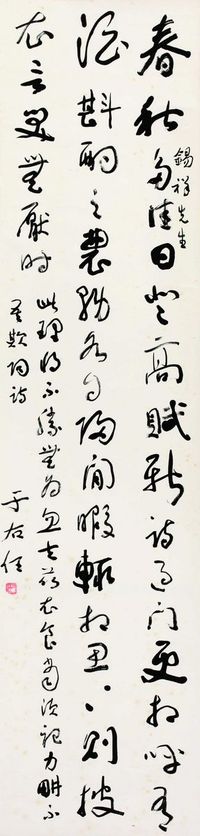 錫祥先生
春秋多佳日登高賦新詩過門更相呼有
酒斟酌之農務各自歸閒暇輒相思〻〻則披
衣言笑無厭時
此理將不勝無為忽去茲衣食當須記力畊不
吾欺陶詩
于右任